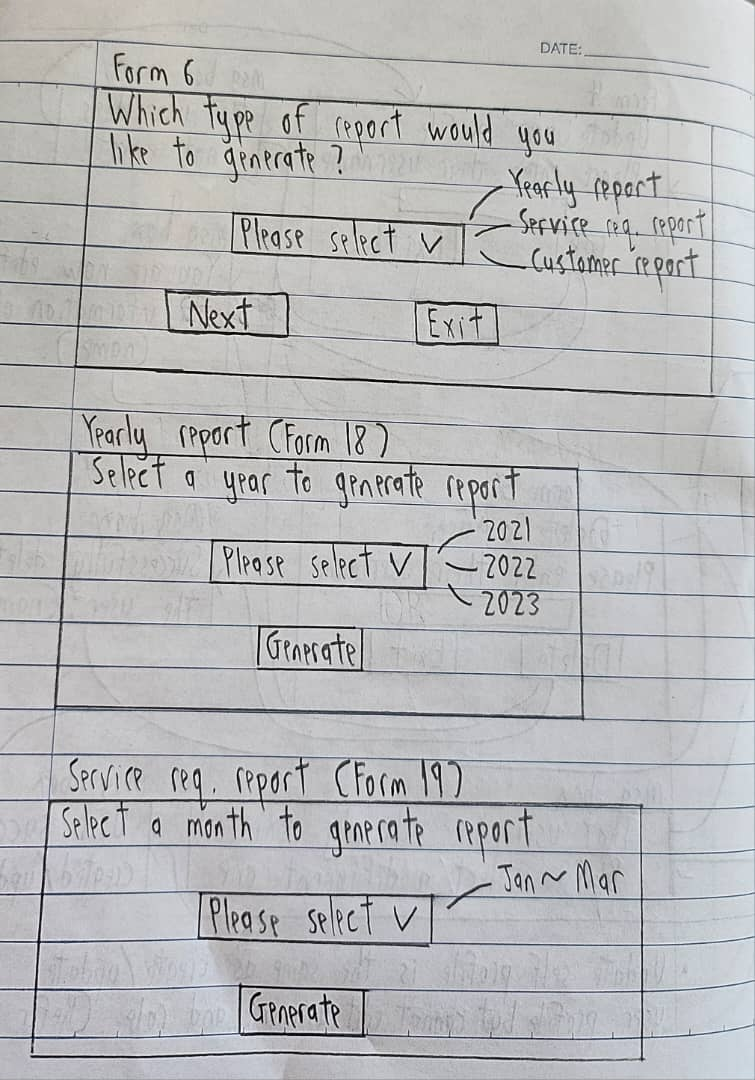 DATE:
Form 6
Which type of report would you
like to generate?
Yearly report
Service req. report
Please select
Customer report
Next
Exit
Yearly report (Form 18)
Select a year to generate report
2021
Please select
2022
2023
Generate
Service req. report (Form 19)
Select a month to generate report
Jan ~ Mar
Please select
Generate